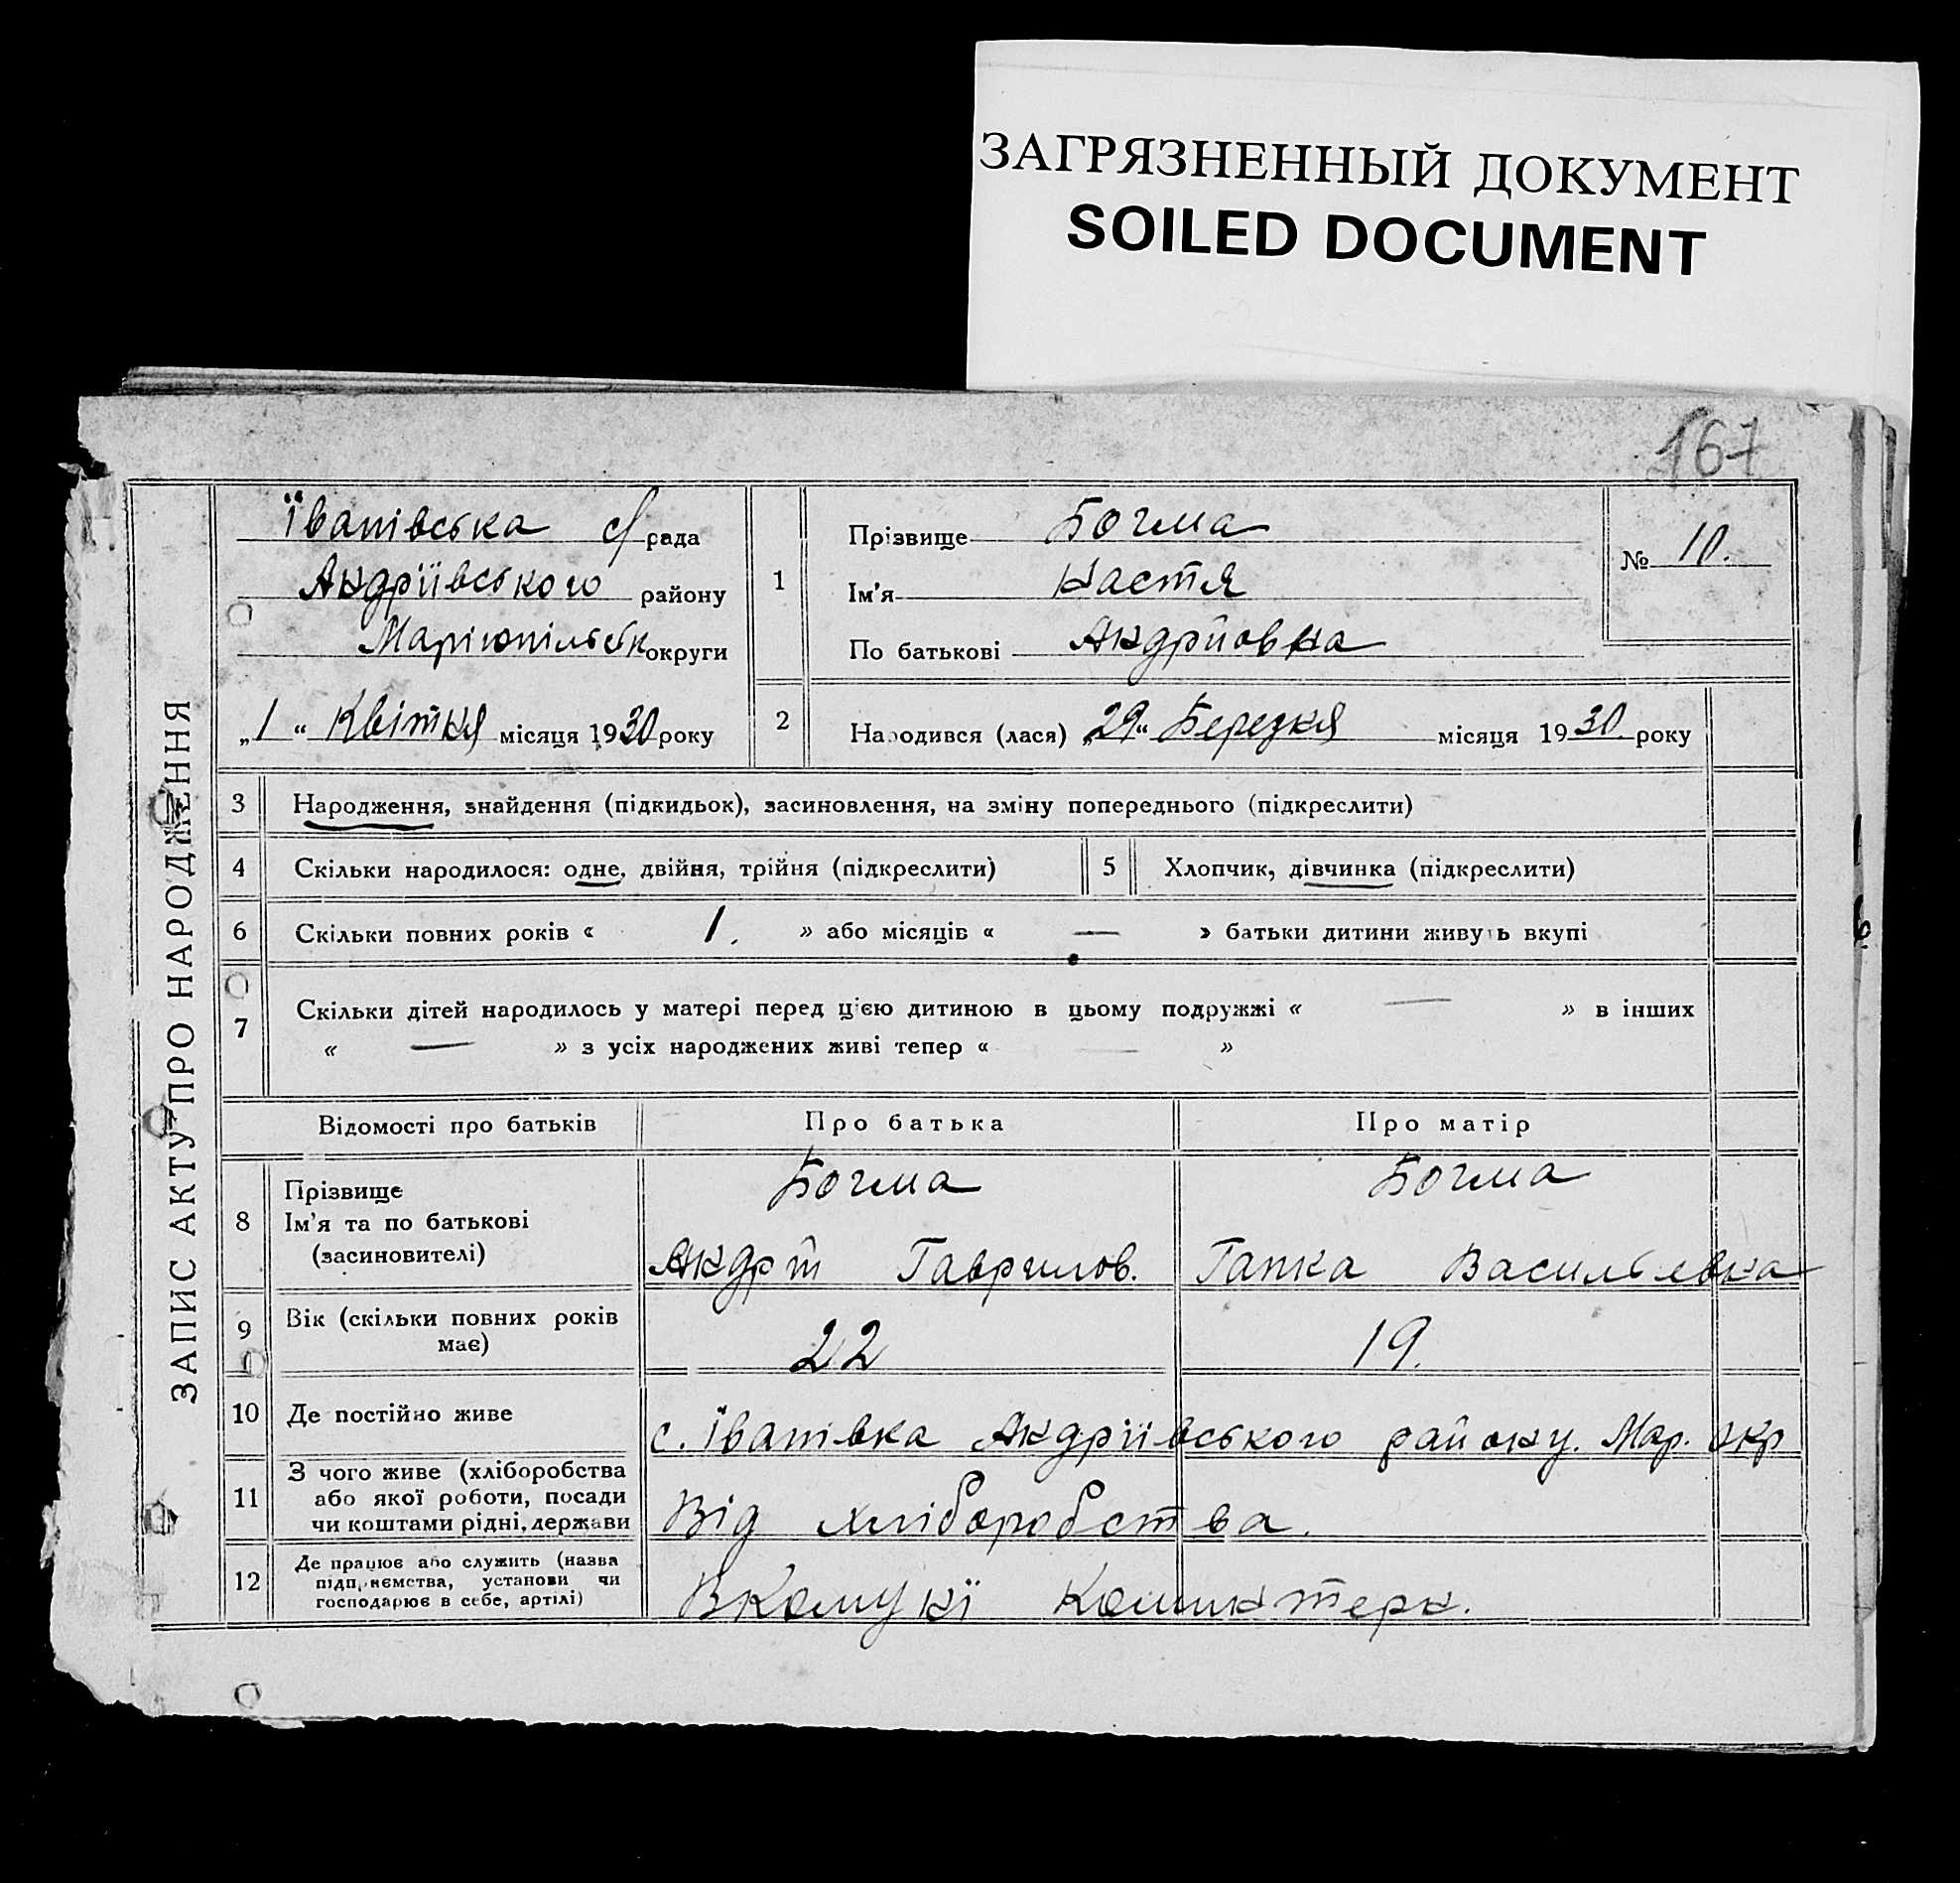 ЗАГРЯЗНЕННЫЙ ДОКУМЕНТ
SOILED DOCUMENT
167
ЗАПИС АКТУ ПРО НАРОДЖЕННЯ
Іванівська с/рада
Андріївського району
Маріюпільськ округи
„1“ Квітня місяця 1930 року
1
Прізвище Богма
Ім'я Настя
По батькові Андрійовна
№ 10.
2
Народився (лася) „29“ Березня місяця 1930 року
3 Народження, знайдення (підкидьок), засиновлення, на зміну попереднього (підкреслити)
4 Скільки народилося: одне, двійня, трійня (підкреслити) 5 Хлопчик, дівчинка (підкреслити)
6 Скільки повних років « 1. » або місяців « — » батьки дитини живуть вкупі
7 Скільки дітей народилось у матері перед цією дитиною в цьому подружжі « — » в інших
« — » з усіх народжених живі тепер « — »
Відомості про батьків Про батька Про матір
8
Прізвище Богма Богма
Ім'я та по батькові
(засиновителі) Андрій Гаврилов. Гапка Васильевна
9 Вік (скільки повних років
має) 22 19.
10 Де постійно живе с. Іванівка Андріївського району. Мар. окр
11 З чого живе (хліборобства
або якої роботи, посади
чи коштами рідні, держави Від хліборобства.
12 Де працює або служить (назва
підприємства, установи чи
господарює в себе, артілі) В Комуні Коминтерн.